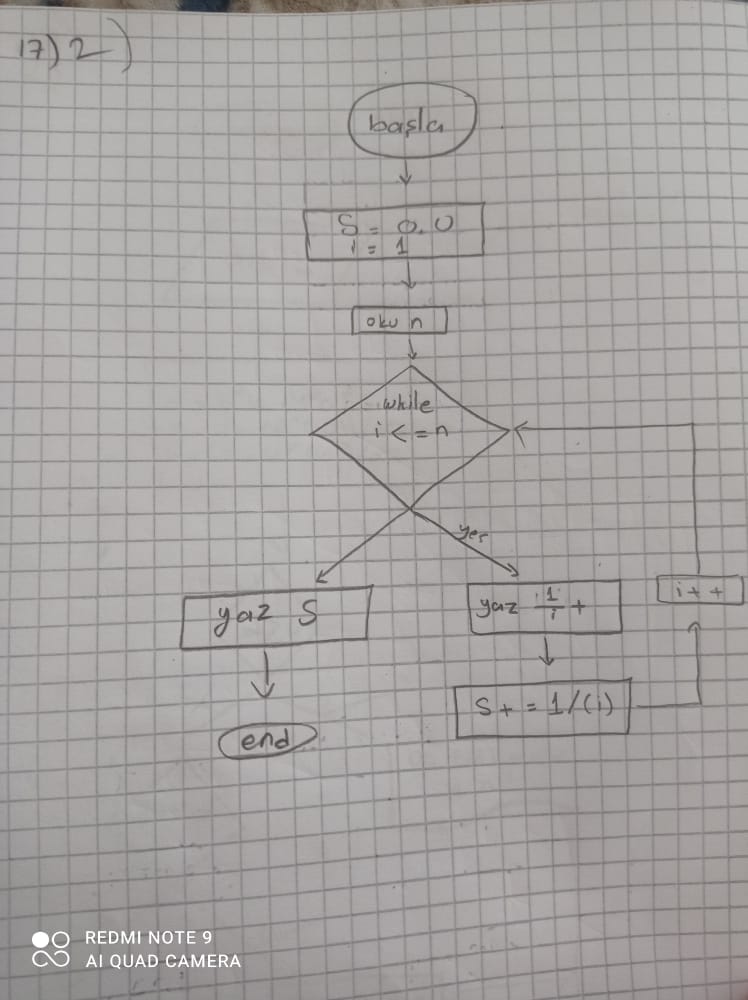 17) 2)
başla
S = 0.0
i = 1
oku n
while
i <= n
yes
yaz S
yaz 1/i +
i++
end
S += 1/(i)
REDMI NOTE 9
AI QUAD CAMERA